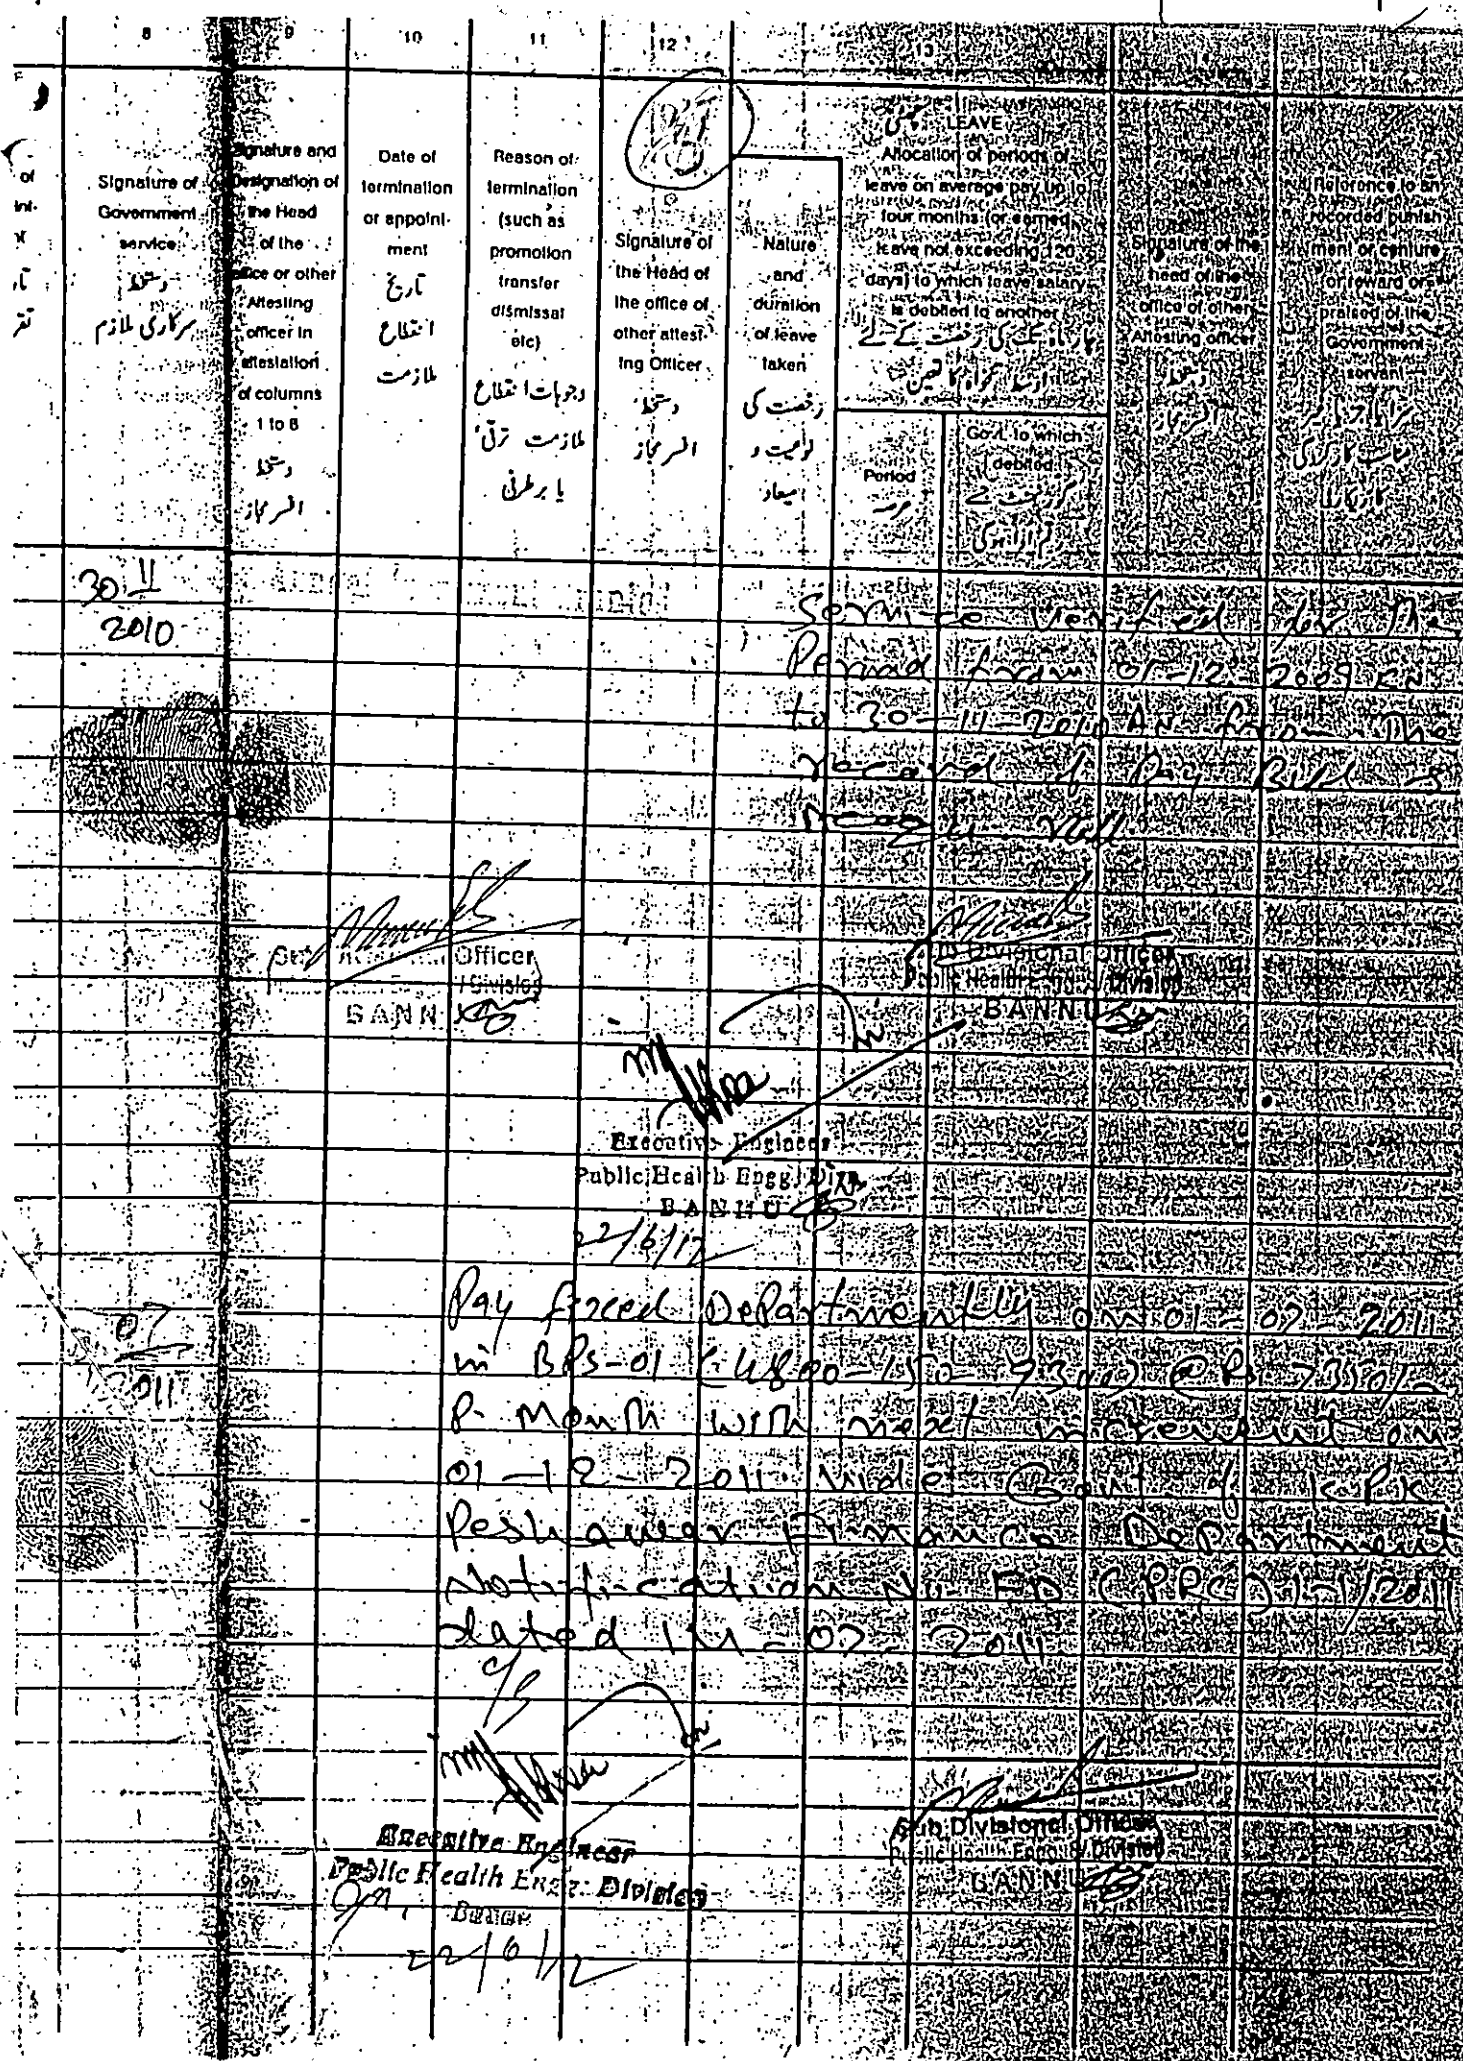 8 9 10 11 12 13
Signature of
Government
service
دستخط
سرکاری ملازم
Signature and
Designation of
the Head
of the
office or other
Attesting
officer in
attestation
of columns
1 to 8
دستخط
افسر مجاز
Date of
termination
or appoint-
ment
تاریخ
انقطاع
ملازمت
Reason of
termination
(such as
promotion
transfer
dismissal
etc)
وجوہات انقطاع
ملازمت ترقی
یا برطرفی
Signature of
the Head of
the office of
other attest-
ing Officer
دستخط
افسر مجاز
Nature
and
duration
of leave
taken
رخصت کی
نوعیت و
میعاد
LEAVE
Allocation of periods of
leave on average pay up to
four months (or earned
leave not exceeding 120
days) to which leave salary
is debited to another
Period
عرصہ
Govt. to which
debited
Signature of the
head of the
office of other
Attesting officer
دستخط
افسر مجاز
Reference to an
recorded punish
ment or centure
or reward or
praised of the
Government
servant
30 11
2010
Service verified for the
Period from 01-12-2009
to 30-11-2010 AN from the
record of Pay Bill &
Officer
Division
BANN
Divisional Officer
Public Health Division
BANNU
Executive Engineer
Public Health Engg: Divn
BANNU
22/6/12
07
2011
Pay fixed Departmently on 01-07-2011
in BPS-01 (4800-150-9300) @ Rs 7350/-
P. Month with next increment on
01-12-2011 vide Govt of K.P.K
Peshawar Finance Department
Notification No FD (PRC) 1-1/2011
dated 14-07-2011
Executive Engineer
Public Health Engg: Division
Bannu
22/6/12
Sub Divisional Officer
Public Health Engg: Division
BANNU